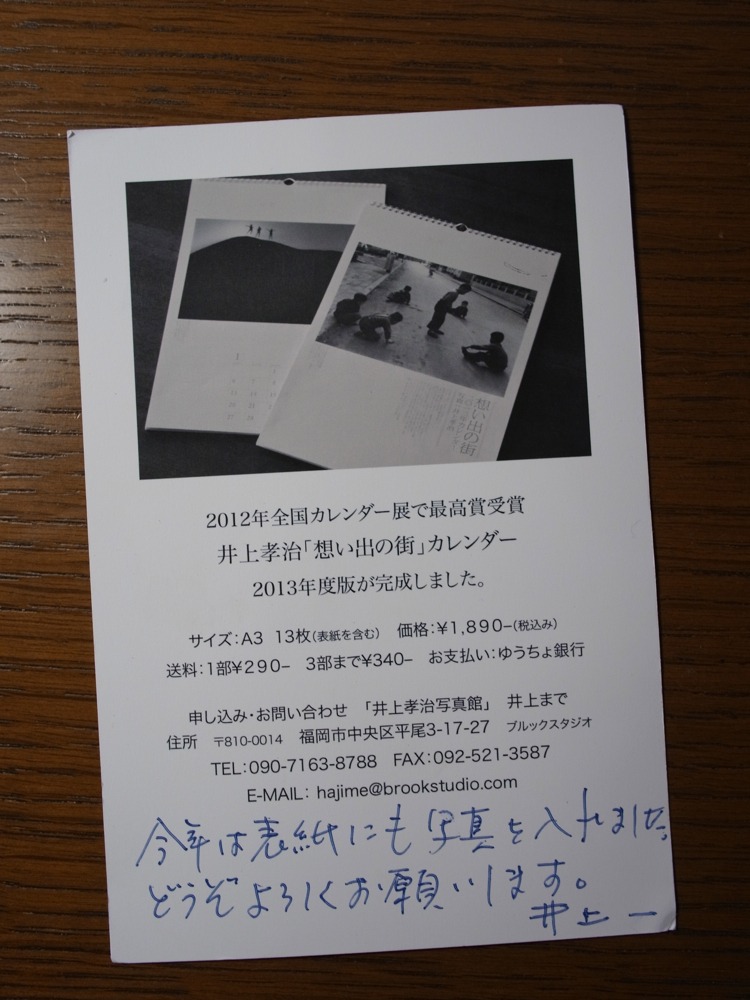 想い出の街
2012年全国カレンダー展で最高賞受賞
井上孝治「想い出の街」カレンダー
2013年度版が完成しました。
サイズ：A3 13枚（表紙を含む） 価格：¥1,890–（税込み）
送料：1部¥290– 3部まで¥340– お支払い：ゆうちょ銀行
申し込み・お問い合わせ 「井上孝治写真館」 井上まで
住所 〒810-0014 福岡市中央区平尾3-17-27 ブルックスタジオ
TEL：090-7163-8788 FAX：092-521-3587
E-MAIL： hajime@brookstudio.com
今年は表紙にも写真を入れました。
どうぞよろしくお願いします。
井上 一